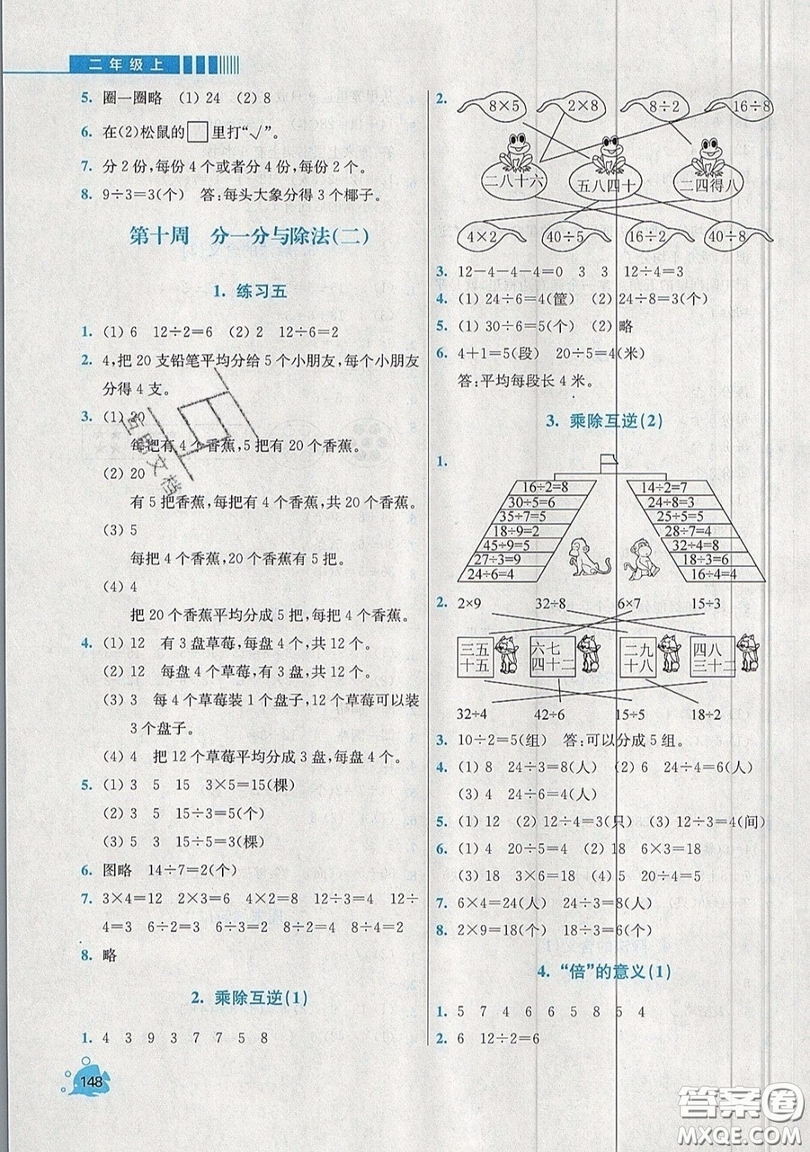 二年级上
5. 圈一圈略 (1) 24 (2) 8
6. 在(2)松鼠的□里打“√”。
7. 分2份,每份4个或者分4份,每份2个。
8. 9÷3=3(个) 答:每头大象分得3个椰子。
第十周 分一分与除法(二)
1. 练习五
1. (1) 6 12÷2=6 (2) 2 12÷6=2
2. 4,把20支铅笔平均分给5个小朋友,每个小朋友
分得4支。
3. (1) 20
每把有4个香蕉,5把有20个香蕉。
(2) 20
有5把香蕉,每把有4个香蕉,共20个香蕉。
(3) 5
每把4个香蕉,20个香蕉有5把。
(4) 4
把20个香蕉平均分成5把,每把有4个香蕉。
4. (1) 12 有3盘草莓,每盘4个,共12个。
(2) 12 每盘4个草莓,有3盘,共12个。
(3) 3 每4个草莓装1个盘子,12个草莓可以装
3个盘子。
(4) 4 把12个草莓平均分成3盘,每盘4个。
5. (1) 3 5 15 3×5=15(棵)
(2) 3 5 15÷3=5(个)
(3) 5 3 15÷5=3(棵)
6. 图略 14÷7=2(个)
7. 3×4=12 2×3=6 4×2=8 12÷3=4 12÷
4=3 6÷2=3 6÷3=2 8÷2=4 8÷4=2
8. 略
2. 乘除互逆(1)
1. 4 3 9 3 7 7 5 8
148
2.
8×5 2×8 8÷2 16÷8
二八十六 五八四十 二四得八
4×2 40÷5 16÷2 40÷8
3. 12-4-4-4=0 3 3 12÷4=3
4. (1) 24÷6=4(筐) (2) 24÷8=3(个)
5. (1) 30÷6=5(个) (2) 略
6. 4+1=5(段) 20÷5=4(米)
答:平均每段长4米。
3. 乘除互逆(2)
1.
16÷2=8 14÷2=7
30÷5=6 24÷8=3
35÷7=5 25÷5=5
18÷9=2 28÷7=4
45÷9=5 32÷8=4
27÷3=9 14÷7=2
24÷6=4 18÷2=9
2. 2×9 32÷8 6×7 15÷3
三五 六七 二九 四八
十五 四十二 十八 三十二
32÷4 42÷6 15÷5 18÷2
3. 10÷2=5(组) 答:可以分成5组。
4. (1) 8 24÷3=8(人) (2) 6 24÷4=6(人)
(3) 4 24÷6=4(人)
5. (1) 12 (2) 12÷4=3(只) (3) 12÷3=4(间)
6. (1) 4 20÷5=4 (2) 18 6×3=18
(3) 18 3×6=18 (4) 5 20÷4=5
7. 6×4=24(人) 24÷8=3(人)
8. 2×9=18(个) 18÷3=6(个)
4. “倍”的意义(1)
1. 5 7 4 6 6 5 8 5 4
2. 6 12÷2=6
答案圈
MXQE.COM